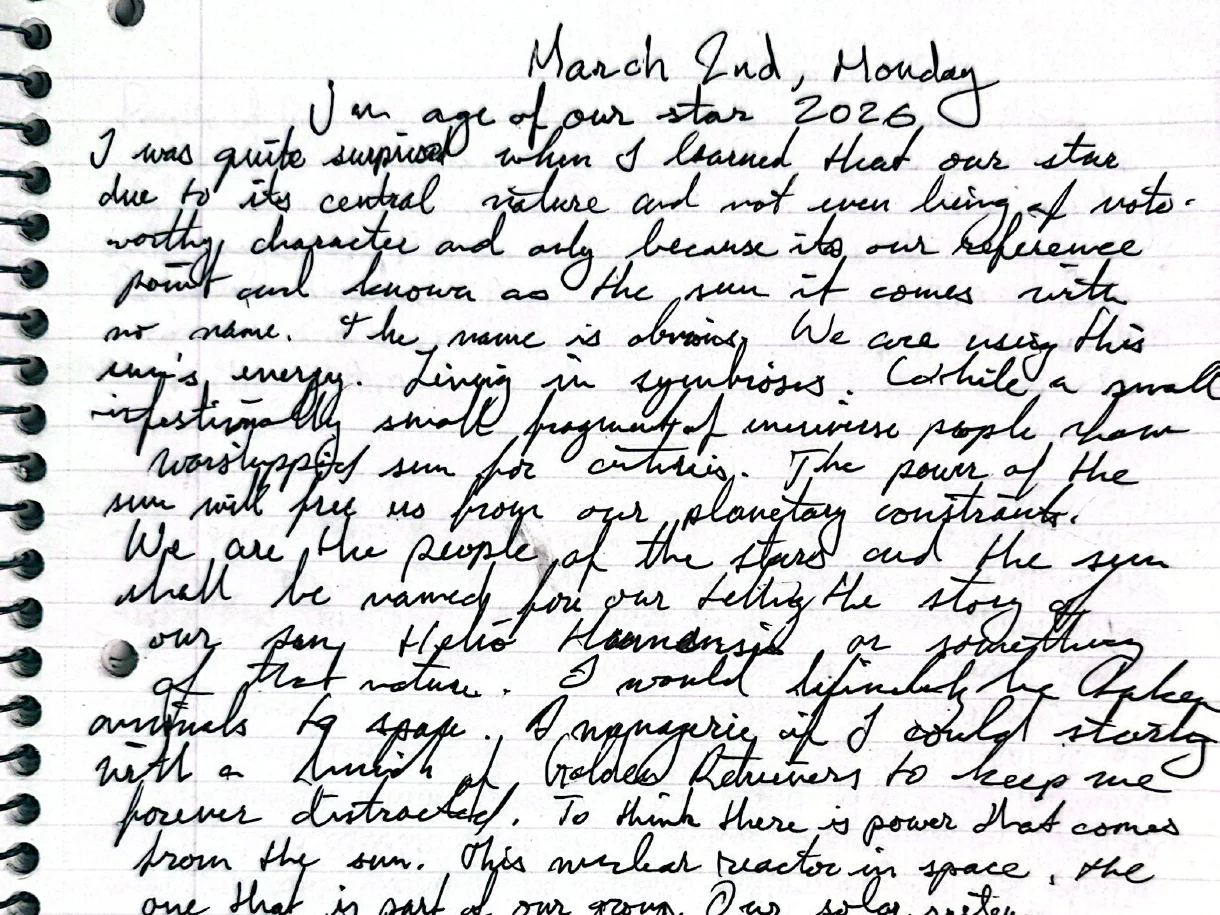 March 2nd, Monday
age of our star 2026
I was quite surprised when I learned that our star
due to its central nature and not even being of note-
worthy character and only because its our reference
point and known as the sun it comes with
no name. The name is obvious. We are using this
sun's energy. Living in symbiosis. While a small
small fragment of universe people have
worshipped sun for centuries. The power of the
sun will free us from our planetary constraints.
We are the people of the stars and the sun
shall be named for our telling the story of
our sun, Helio or something
of that nature. I would definitely be
animals to space. A menagerie if I could starting
with a of Golden Retrievers to keep me
forever distracted. To think there is power that comes
from the sun. This nuclear reactor in space, the
one that is part of our group. Our solar system